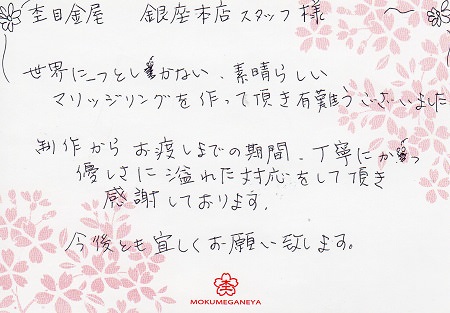 杢目金屋 銀座本店スタッフ様
世界に一つとしかない、素晴らしい
マリッジリングを作って頂き有難うございました
制作からお渡しまでの期間、丁寧にかつ
優しさに溢れた対応をして頂き
感謝しております。
今後とも宜しくお願い致します。
MOKUMEGANEYA